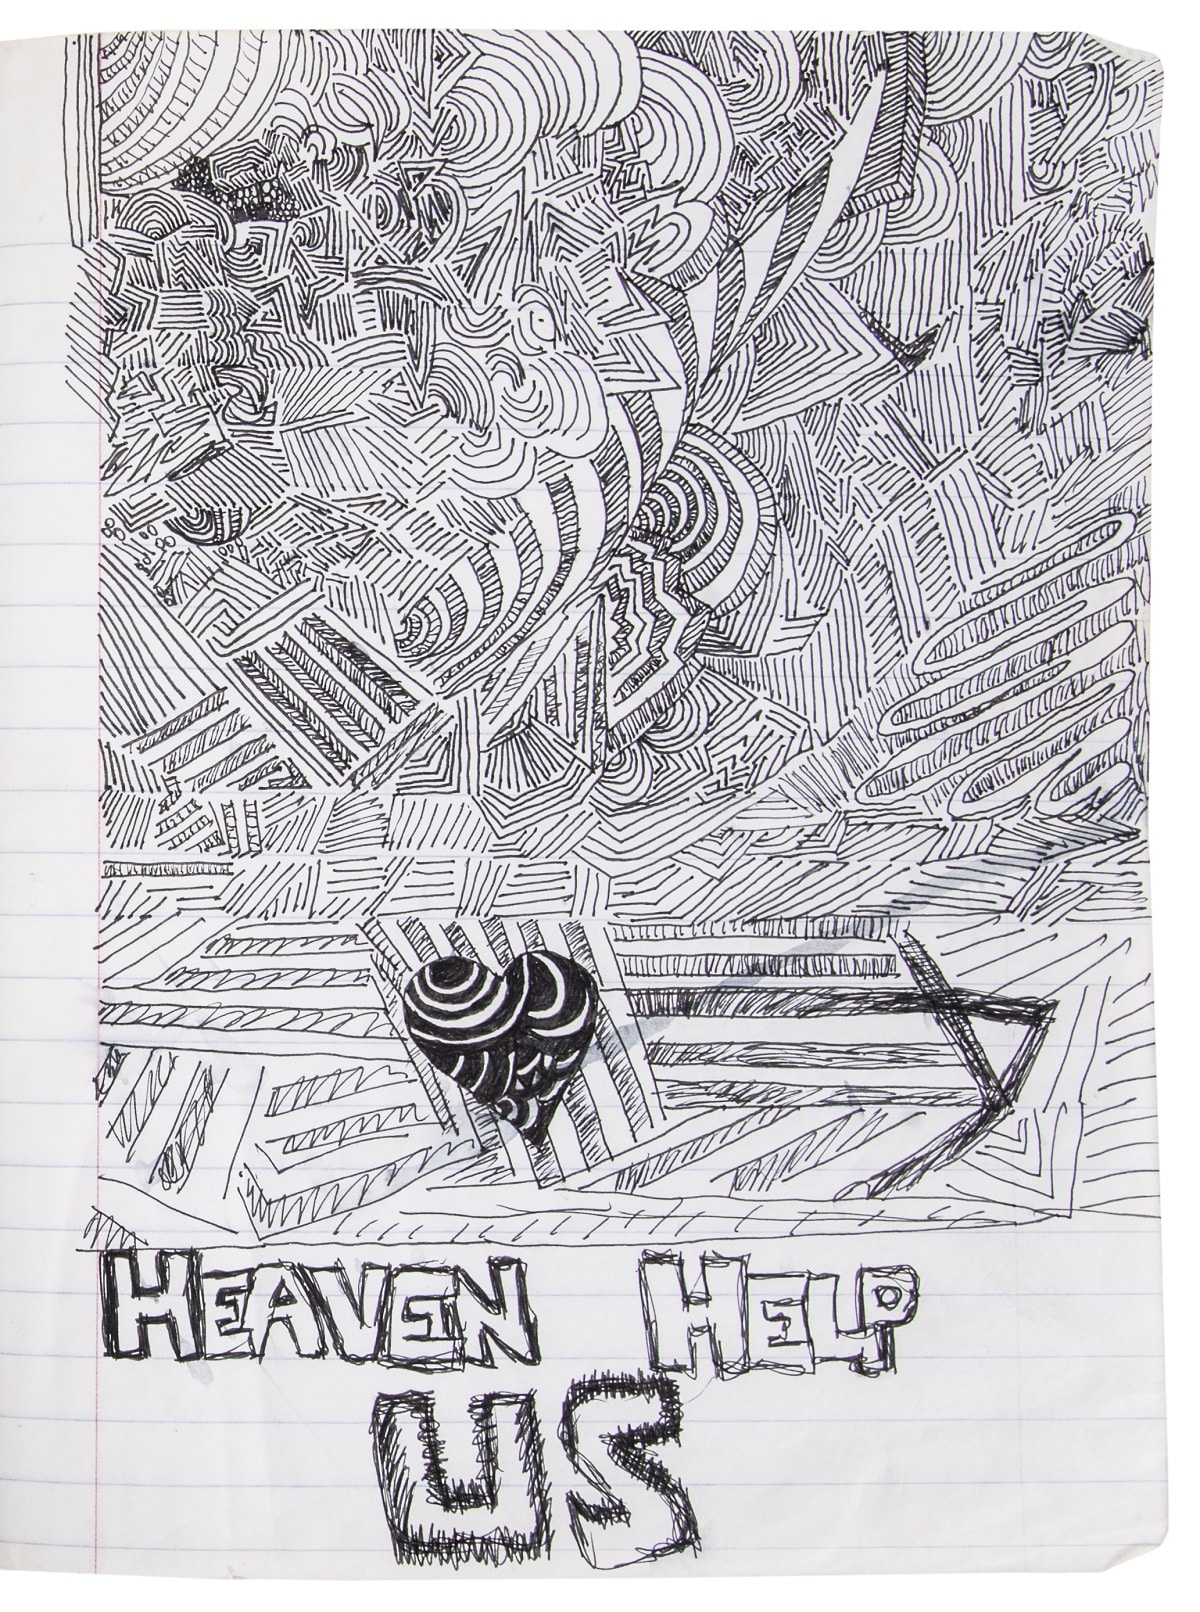 HEAVEN HELP
US